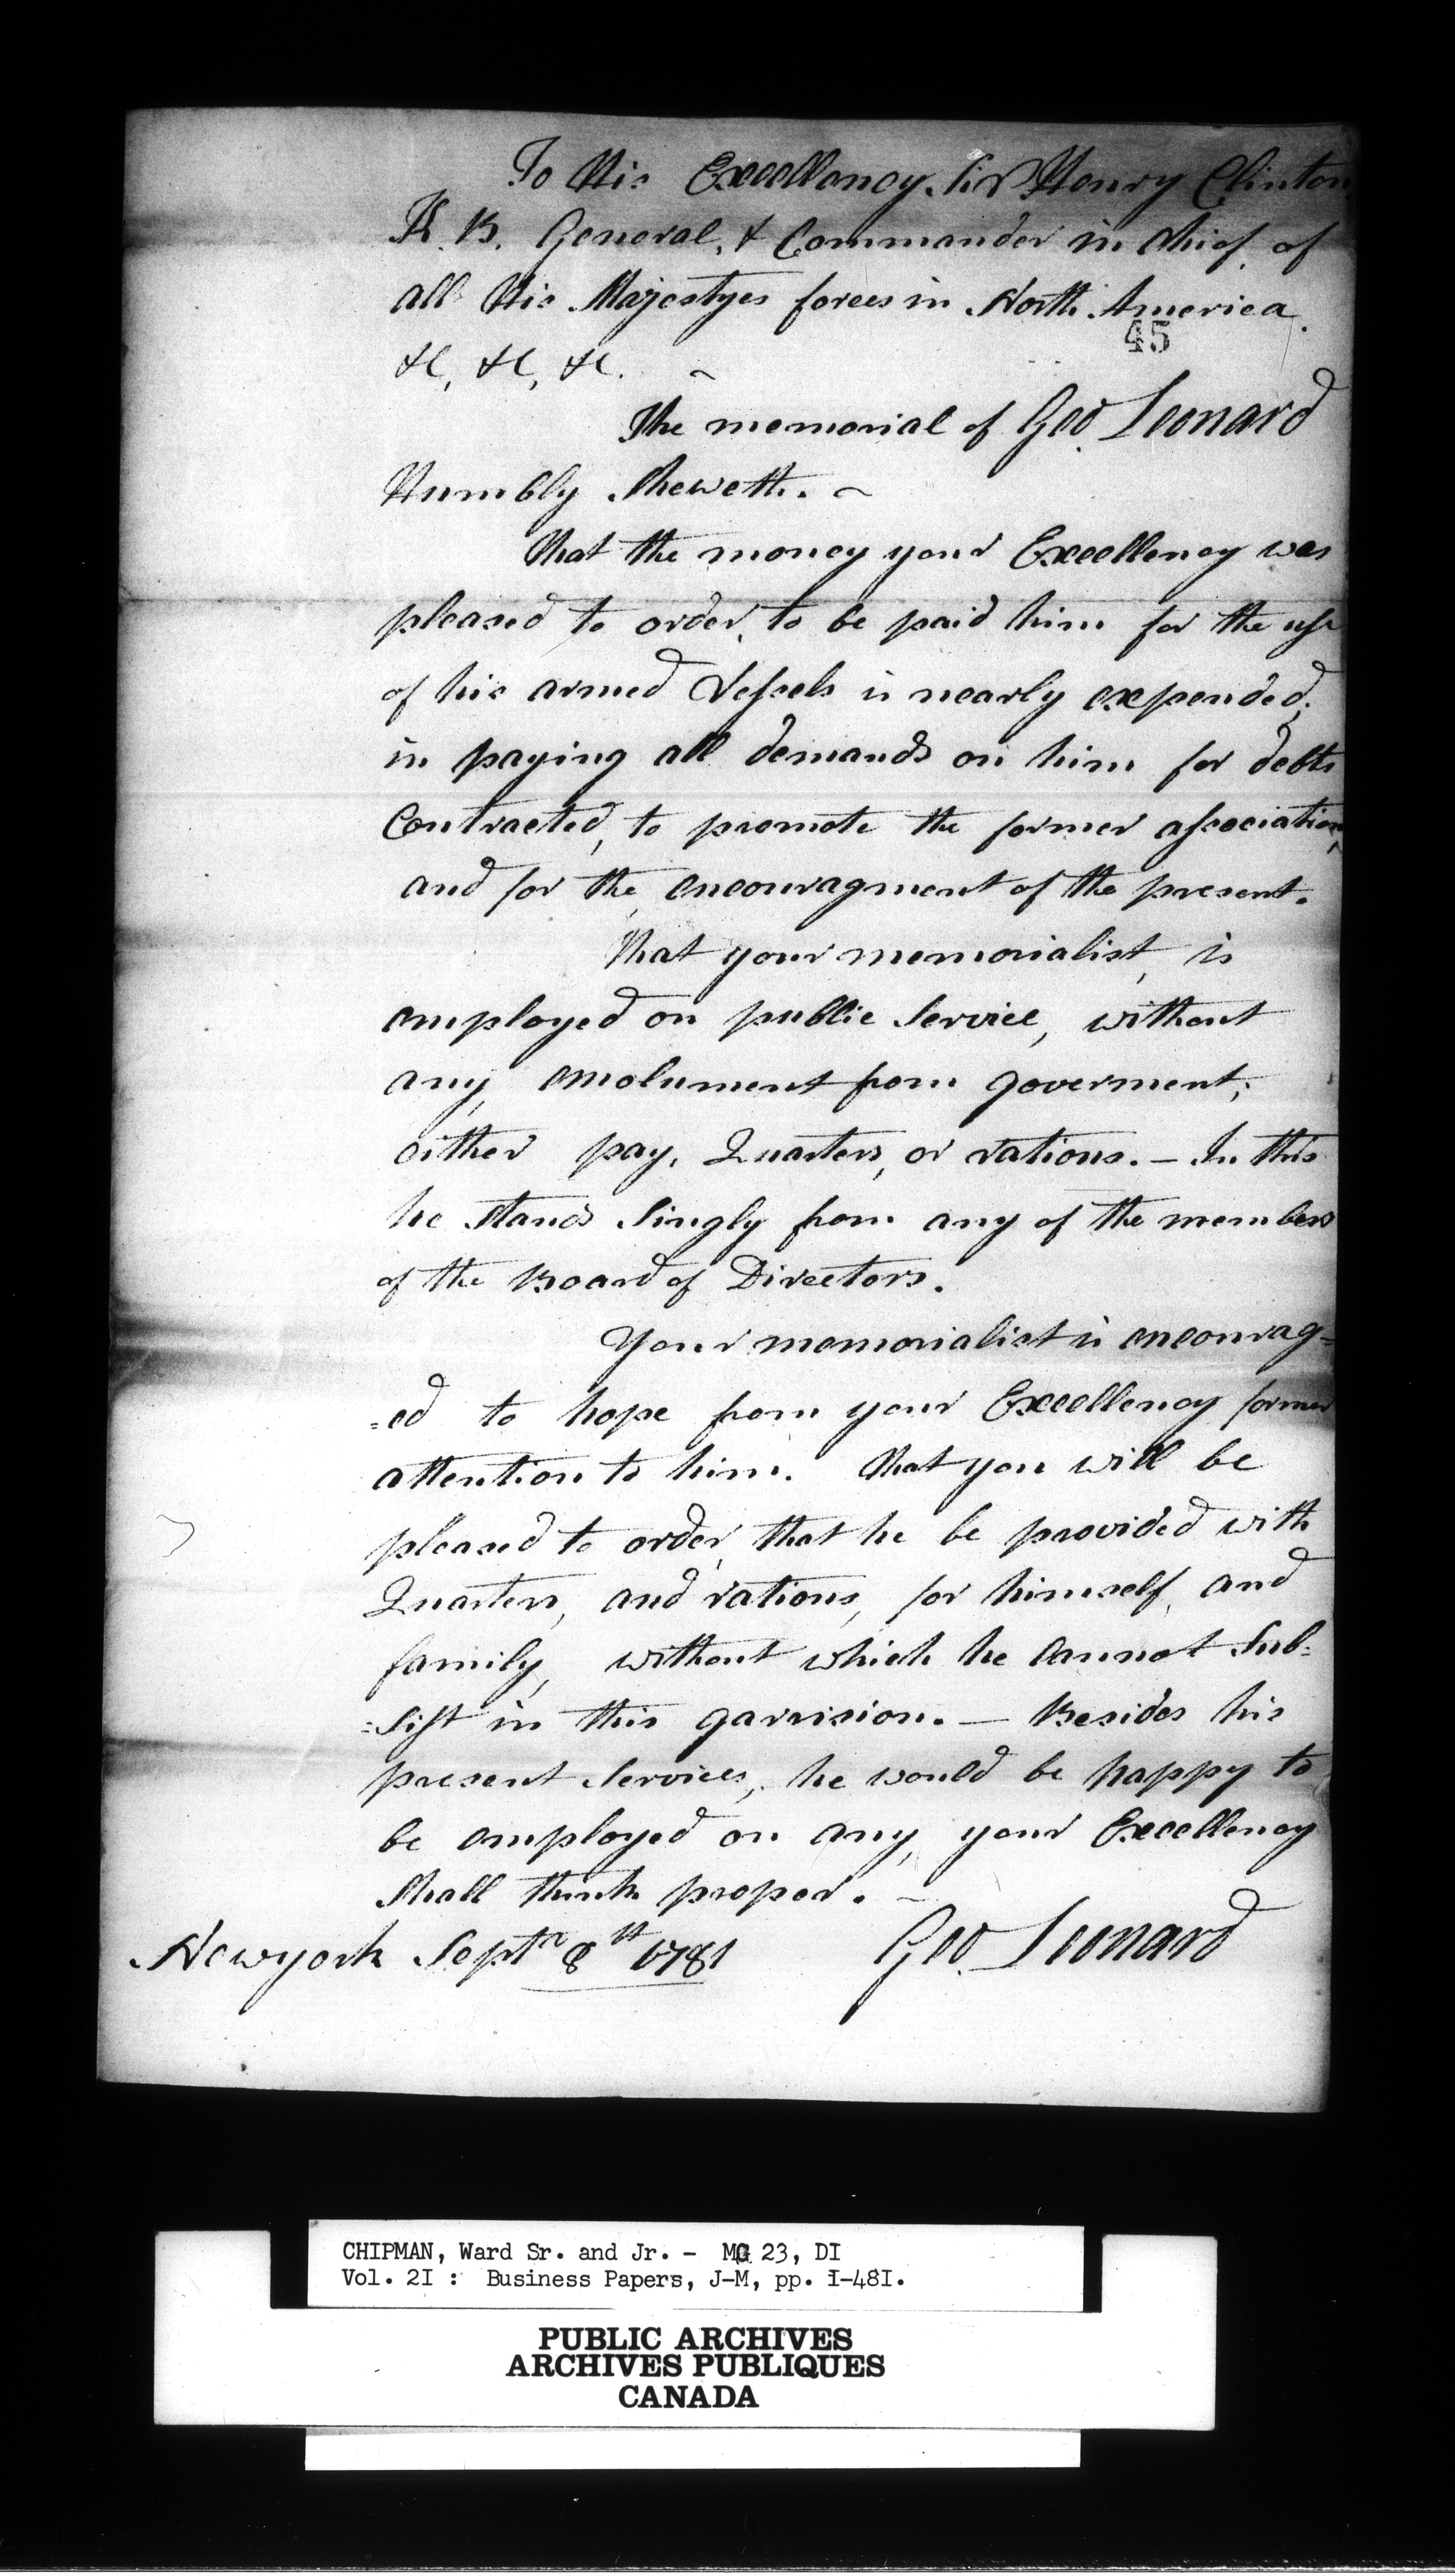 To His Excellency Sir Henry Clinton
K. B. General, & Commander in Chief of
all His Majestyes forces in North America.
45
&c, &c, &c. ~
The memorial of Geo. Leonard
Humbly Sheweth. ~
That the money your Excellency was
pleased to order, to be paid him for the use
of his armed Vessels is nearly expended,
in paying all demands on him for debts
Contracted, to promote the former association,
and for the encouragment of the present.
That your memorialist, is
employed on public Service, without
any, emolument from goverment;
either pay, Quarters, or rations. — In this
he stands Singly from any of the members
of the Board of Directors.
Your memorialist is encourag=
=ed to hope from your Excellency former
attention to him. That you will be
pleased to order, that he be provided with
Quarters, and rations, for himself, and
family, without which he cannot Sub=
=sist in this garrision. — Besides his
present Services, he would be happy to
be employed on any, your Excellency
Shall think proper. ~
Newyork Septr 8th 1781 Geo. Leonard
CHIPMAN, Ward Sr. and Jr. - MG 23, DI
Vol. 2I : Business Papers, J-M, pp. I-48I.
PUBLIC ARCHIVES
ARCHIVES PUBLIQUES
CANADA